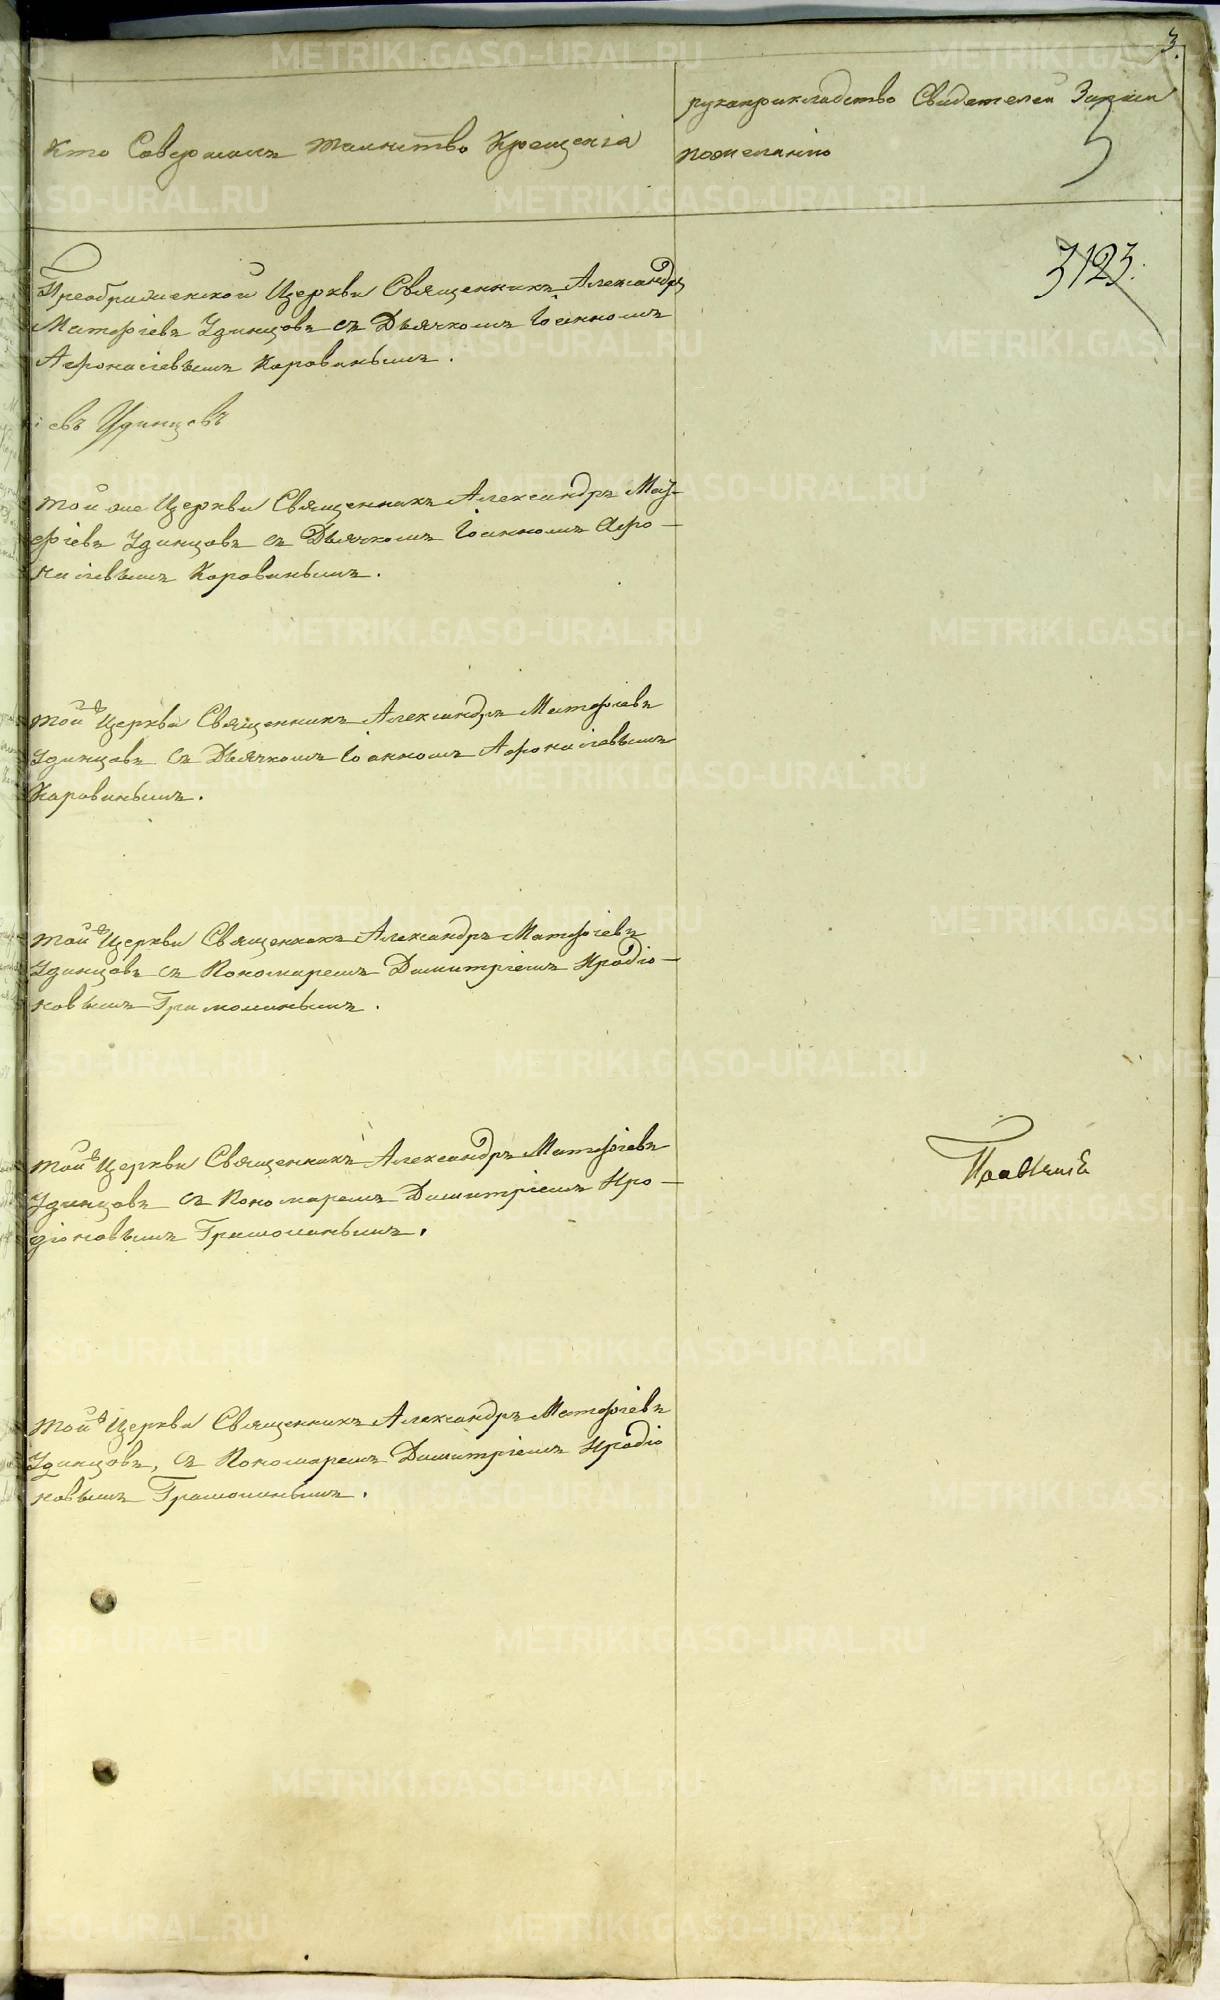 3.
Кто Совершалъ таинство Крещенія
рукоприкладство Свидетелей Записи
пожеланію
5
3123.
Преображенской Церкви Священникъ Александръ
Матфіевъ Удинцовъ съ Дьячкомъ Іоанномъ
Афонасіевымъ Коровинымъ.
евъ Удинцовъ
той же Церкви Священникъ Александръ Мат-
фіевъ Удинцовъ съ Дьячкомъ Іоанномъ Афо-
насіевымъ Коровинымъ.
той ж Церкви Священникъ Александръ Матфіевъ
Удинцовъ съ Дьячкомъ Іоанномъ Афонасіевымъ
Коровинымъ.
той ж Церкви Священникъ Александръ Матфіевъ
Удинцовъ съ Пономаремъ Димитріемъ Иродіо-
новымъ Грамолинымъ.
той ж Церкви Священникъ Александръ Матфіевъ
Удинцовъ съ Пономаремъ Димитріемъ Иро-
діоновымъ Грамолинымъ.
той ж Церкви Священникъ Александръ Матфіевъ
Удинцовъ, съ Пономаремъ Димитріемъ Иродіо
новымъ Грамолинымъ.
METRIKI.GASO-URAL.RU